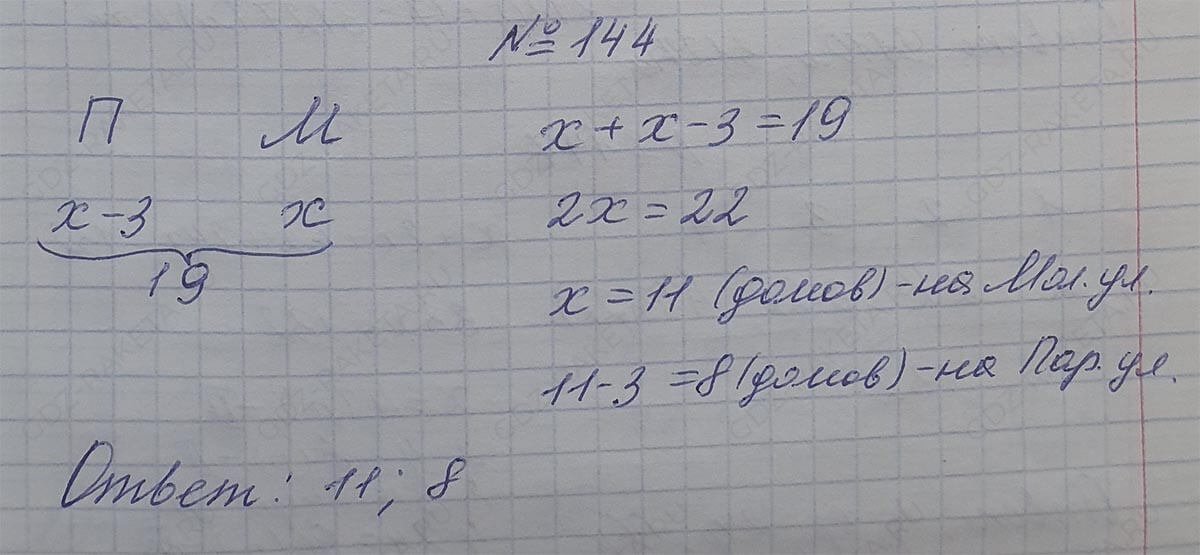 № 144
П М
x-3 x
19
x + x - 3 = 19
2x = 22
x = 11 (домов) - на Мол. ул.
11-3 = 8 (домов) - на Пар. ул.
Ответ: 11; 8